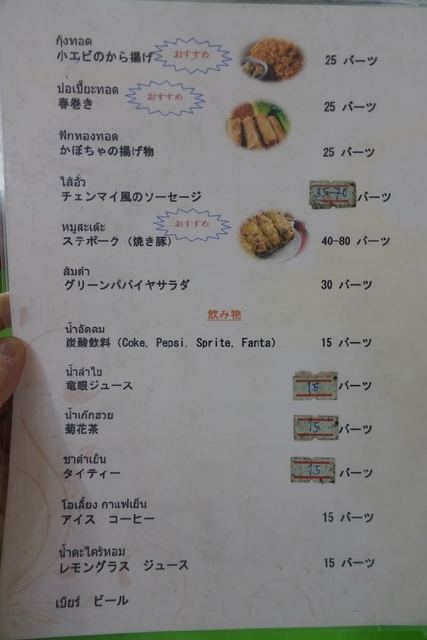 กุ้งทอด
小エビのから揚げ おすすめ 25 バーツ
ปอเปี๊ยะทอด
春巻き おすすめ 25 バーツ
ฟักทองทอด
かぼちゃの揚げ物 25 バーツ
ไส้อั่ว
チェンマイ風のソーセージ 35-70 バーツ
หมูสะเต๊ะ
ステポーク (焼き豚) おすすめ 40-80 バーツ
ส้มตำ
グリーンパパイヤサラダ 30 バーツ
飲み物
น้ำอัดลม
炭酸飲料 (Coke, Pepsi, Sprite, Fanta) 15 バーツ
น้ำลำไย
竜眼ジュース 15 バーツ
น้ำเก๊กฮวย
菊花茶 15 バーツ
ชาดำเย็น
タイティー 15 バーツ
โอเลี้ยง กาแฟเย็น
アイス コーヒー 15 バーツ
น้ำตะไคร้หอม
レモングラス ジュース 15 バーツ
เบียร์ ビール